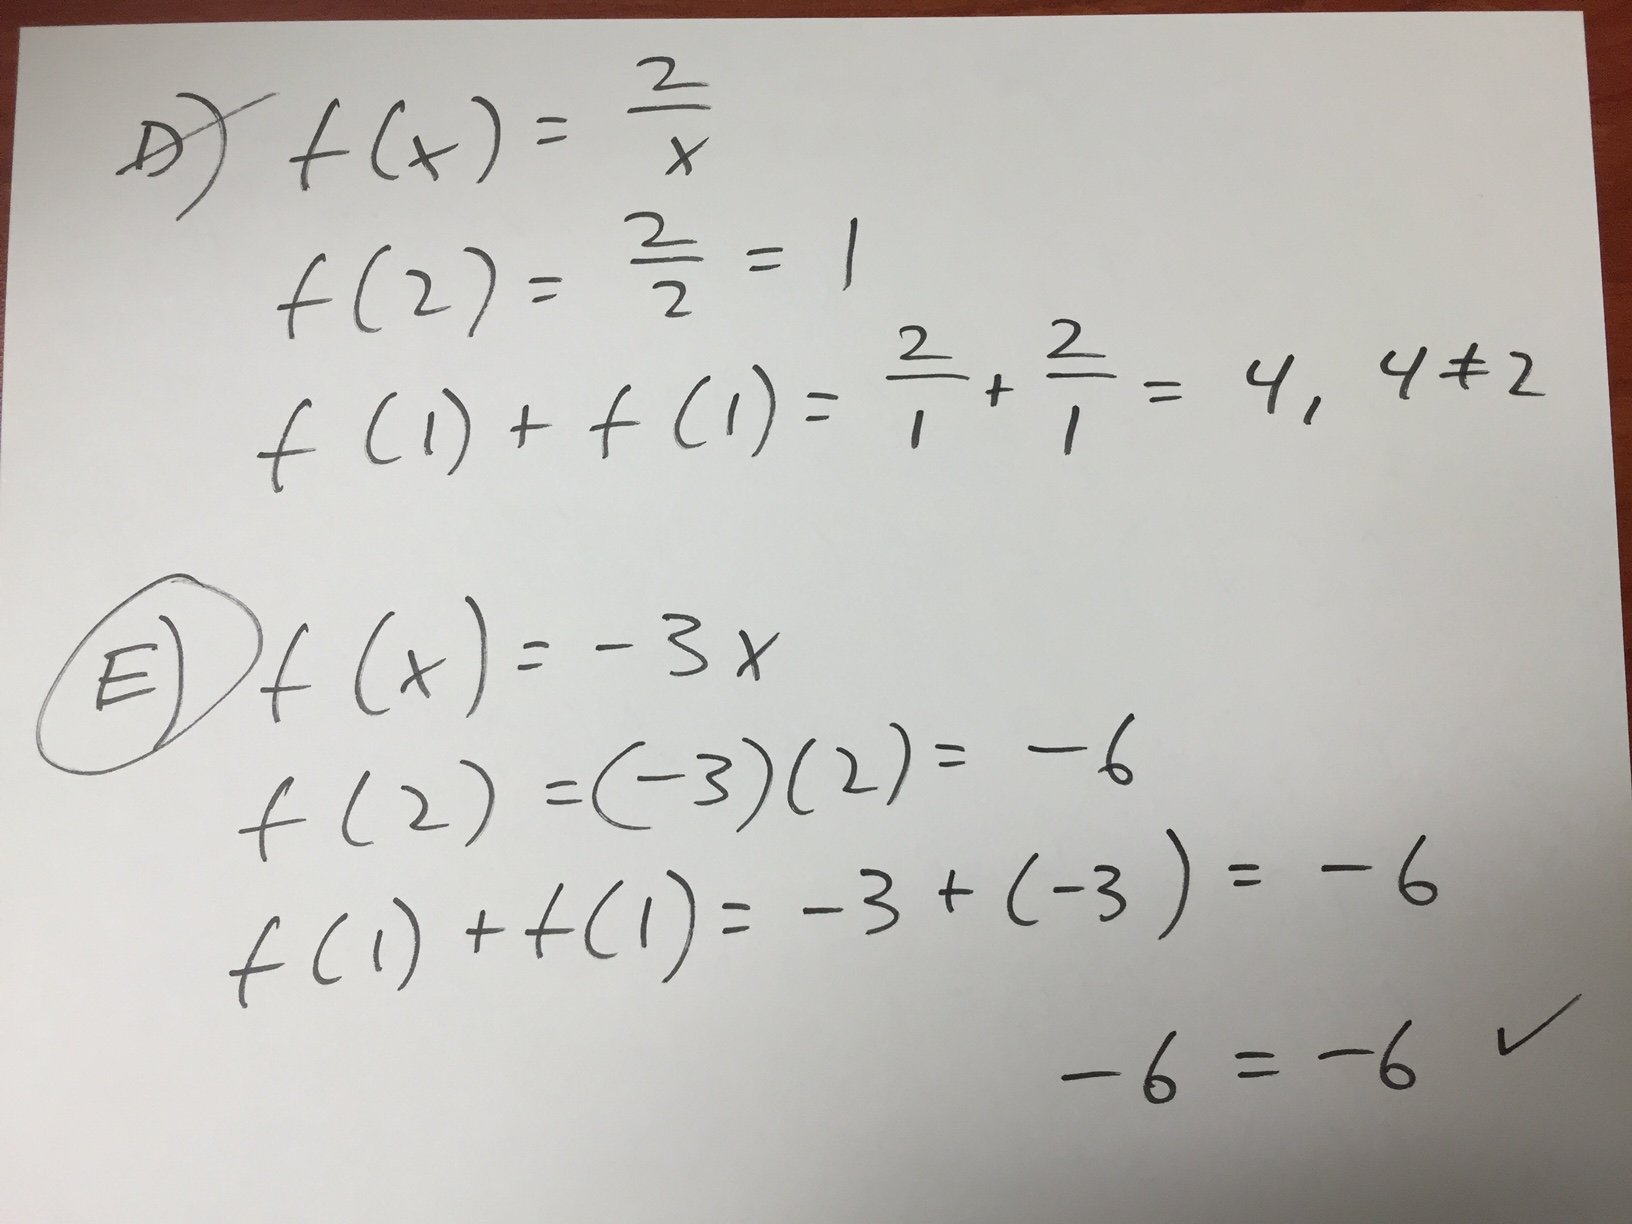 D) f(x) = 2/x
f(2) = 2/2 = 1
f(1) + f(1) = 2/1 + 2/1 = 4, 4 ≠ 2
E) f(x) = -3x
f(2) = (-3)(2) = -6
f(1) + f(1) = -3 + (-3) = -6
-6 = -6 ✓